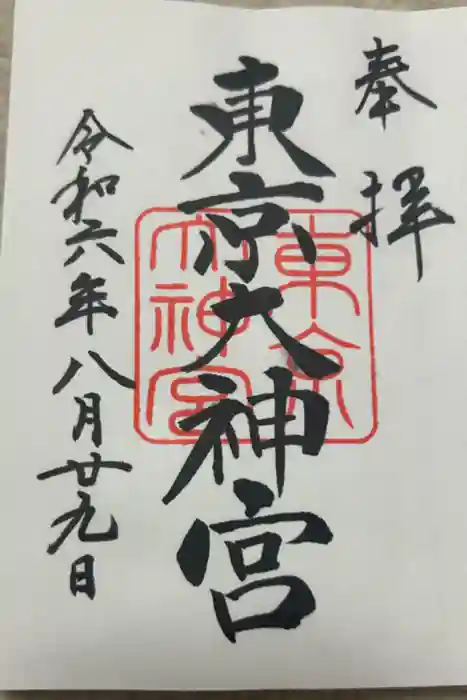 奉拝
東京大神宮
東京大神宮
令和六年八月廿九日